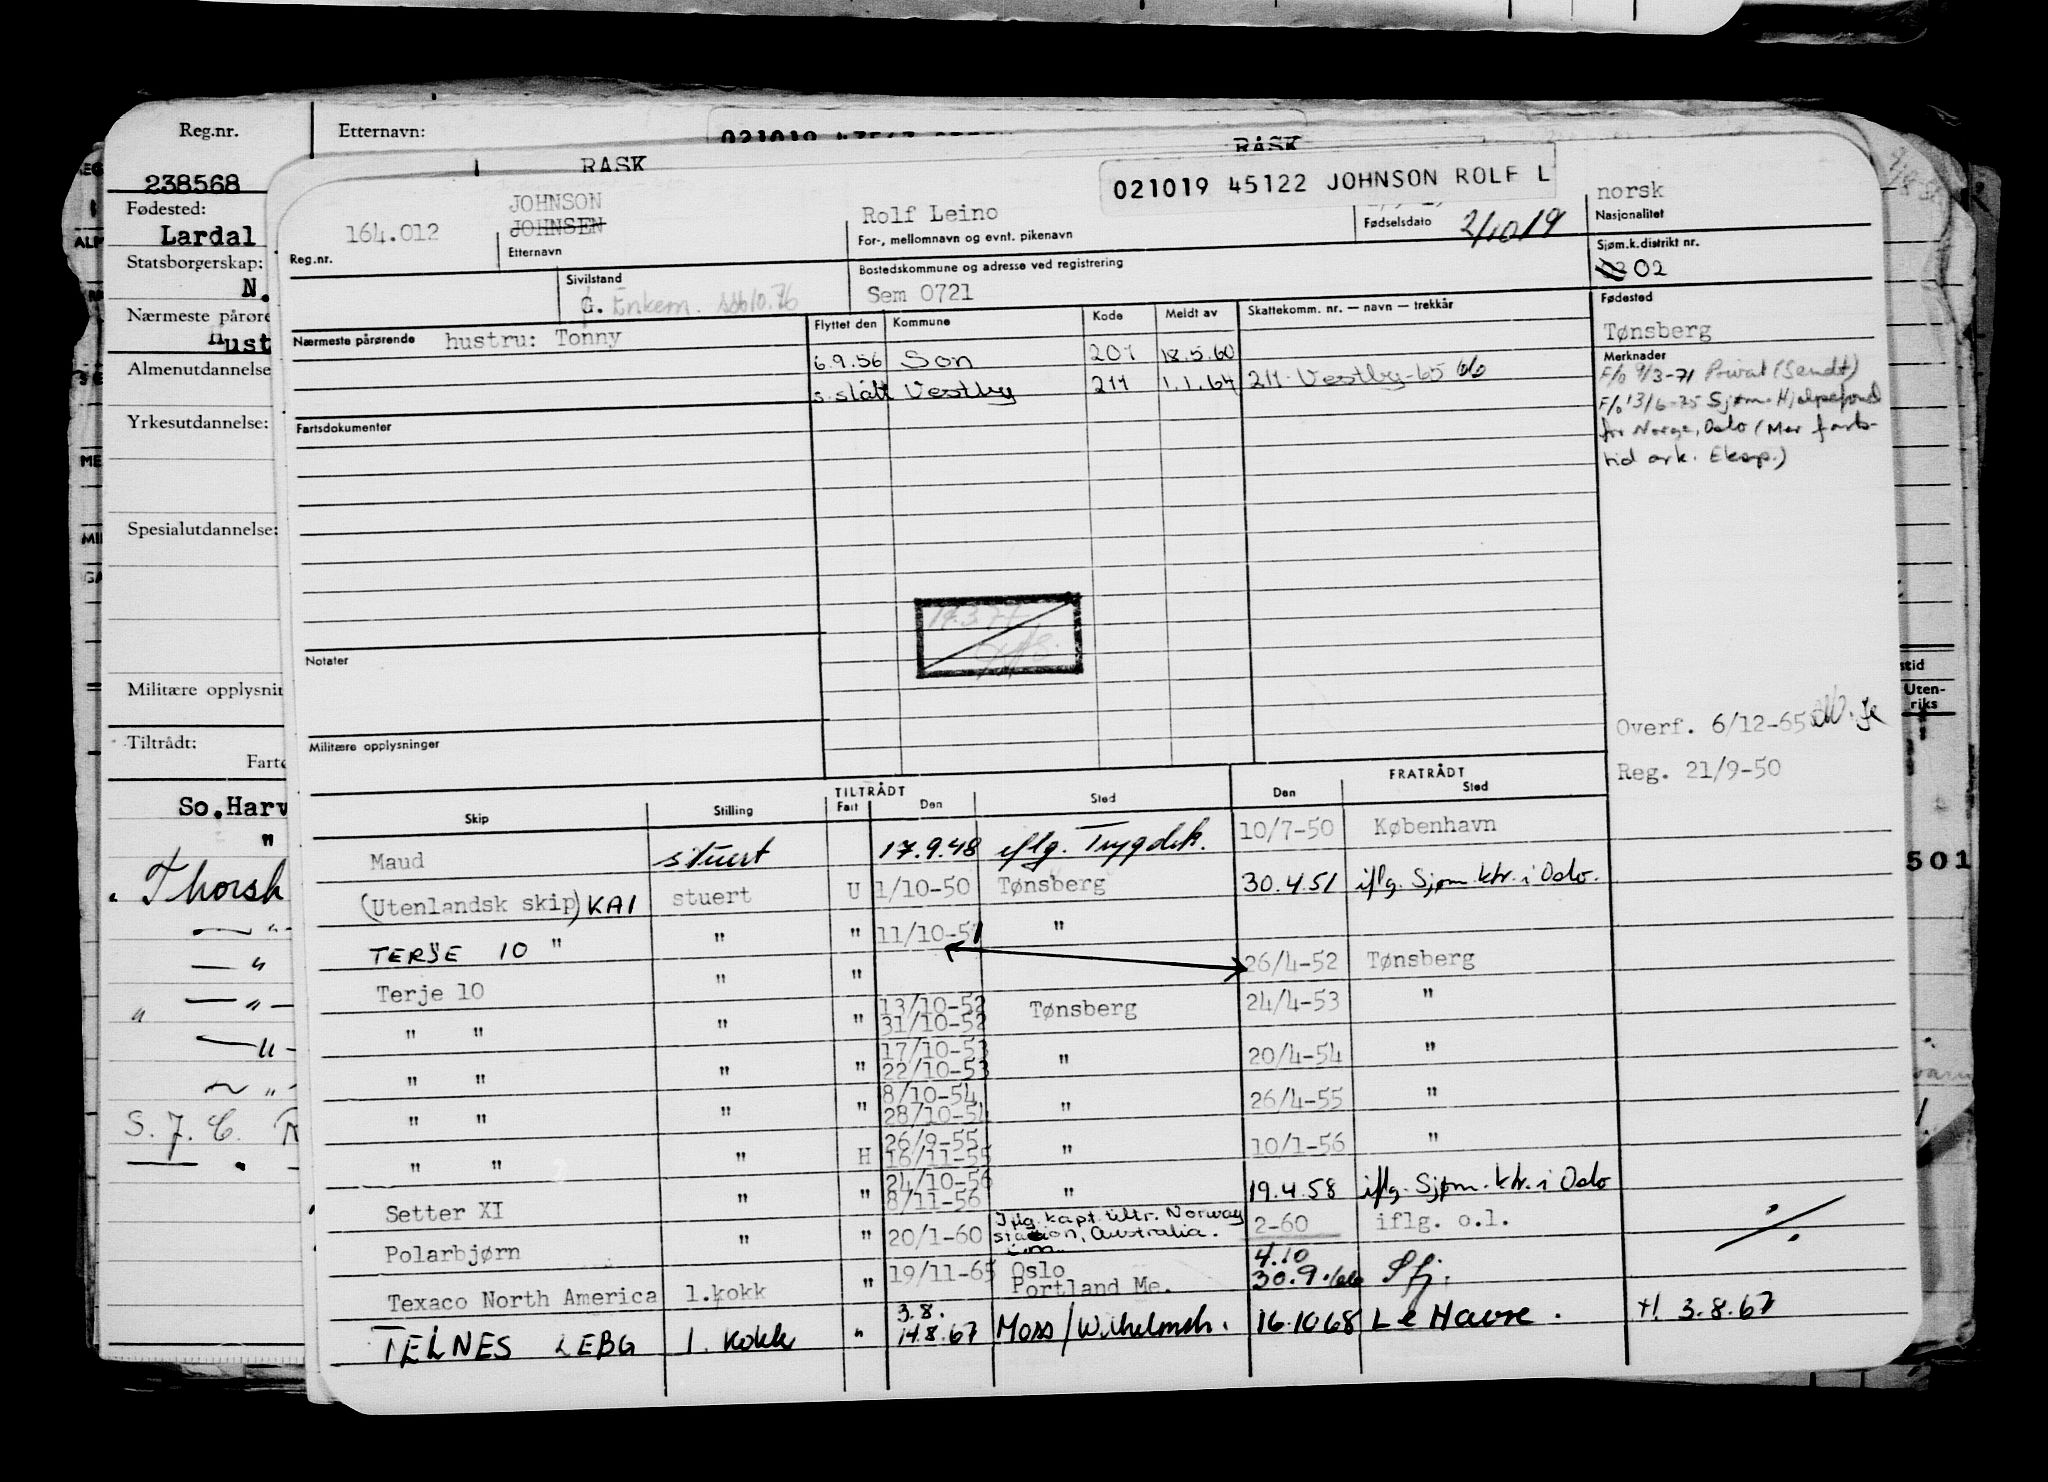 Reg.nr. Etternavn:
RASK RASK
238568
Fødested:
Lardal
Statsborgerskap:
N.
Nærmeste pårøre
Hust
Almenutdannelse
Yrkesutdannelse:
Spesialutdannelse:
Militære opplysnin
Tiltrådt:
Fartø
So.Harv
"
Thorsh
S. J. C.
stid
Uten-
riks
501
021019 45122 JOHNSON ROLF L
164.012 JOHNSON Rolf Leino 2/10 19 norsk
JOHNSEN
Reg.nr. Etternavn For-, mellomnavn og evnt. pikenavn Fødselsdato Nasjonalitet
Sivilstand Bostedskommune og adresse ved registrering Sjøm.k.distrikt nr.
G. Enkem. Sem 0721 02
Fødested
Tønsberg
Nærmeste pårørende hustru: Tonny Flyttet den Kommune Kode Meldt av Skattekomm. nr. — navn — trekkår
6.9.56 Son 201 18.5.60
s. slått Vestby 211 1.1.64 211 Vestby-65
Merknader
F/o 4/3-71 Privat (Sendt)
F/o 13/6-75 Sjøm. Hjelpefond
for Norge, Oslo (Mer farts-
tid ark. Eksp.)
Fartsdokumenter
Notater
Militære opplysninger
Overf. 6/12-65
Reg. 21/9-50
TILTRÅDT FRATRÅDT
Skip Stilling Fart Den Sted Den Sted
Maud stuert 17.9.48 iflg. Trygdek. 10/7-50 København
(Utenlandsk skip) KAI stuert U 1/10-50 Tønsberg 30.4.51 iflg. Sjøm.ktr. i Oslo.
TERJE 10 " " " 11/10-51 "
Terje 10 " " 26/4-52 Tønsberg
" " " " 13/10-52 31/10-52 Tønsberg 24/4-53 "
" " " " 17/10-53 22/10-53 " 20/4-54 "
" " " " 8/10-54 28/10-54 " 26/4-55 "
" " " H 26/9-55 16/11-55 " 10/1-56 "
Setter XI " " 24/10-56 8/11-56 " 19.4.58 iflg. Sjøm.ktr. i Oslo
Polarbjørn " " 20/1-60 Iflg. kapt. tiltr. Norway station, Australia. 2-60 iflg. o.l.
Texaco North America 1.kokk " 19/11-65 Oslo Portland Me. 4.10 30.9. Sfj.
TELNES LEBG 1. kokk " 3.8. 14.8.67 Moss/Wilhelmsh. 16.10 68 Le Havre. +! 3.8.67